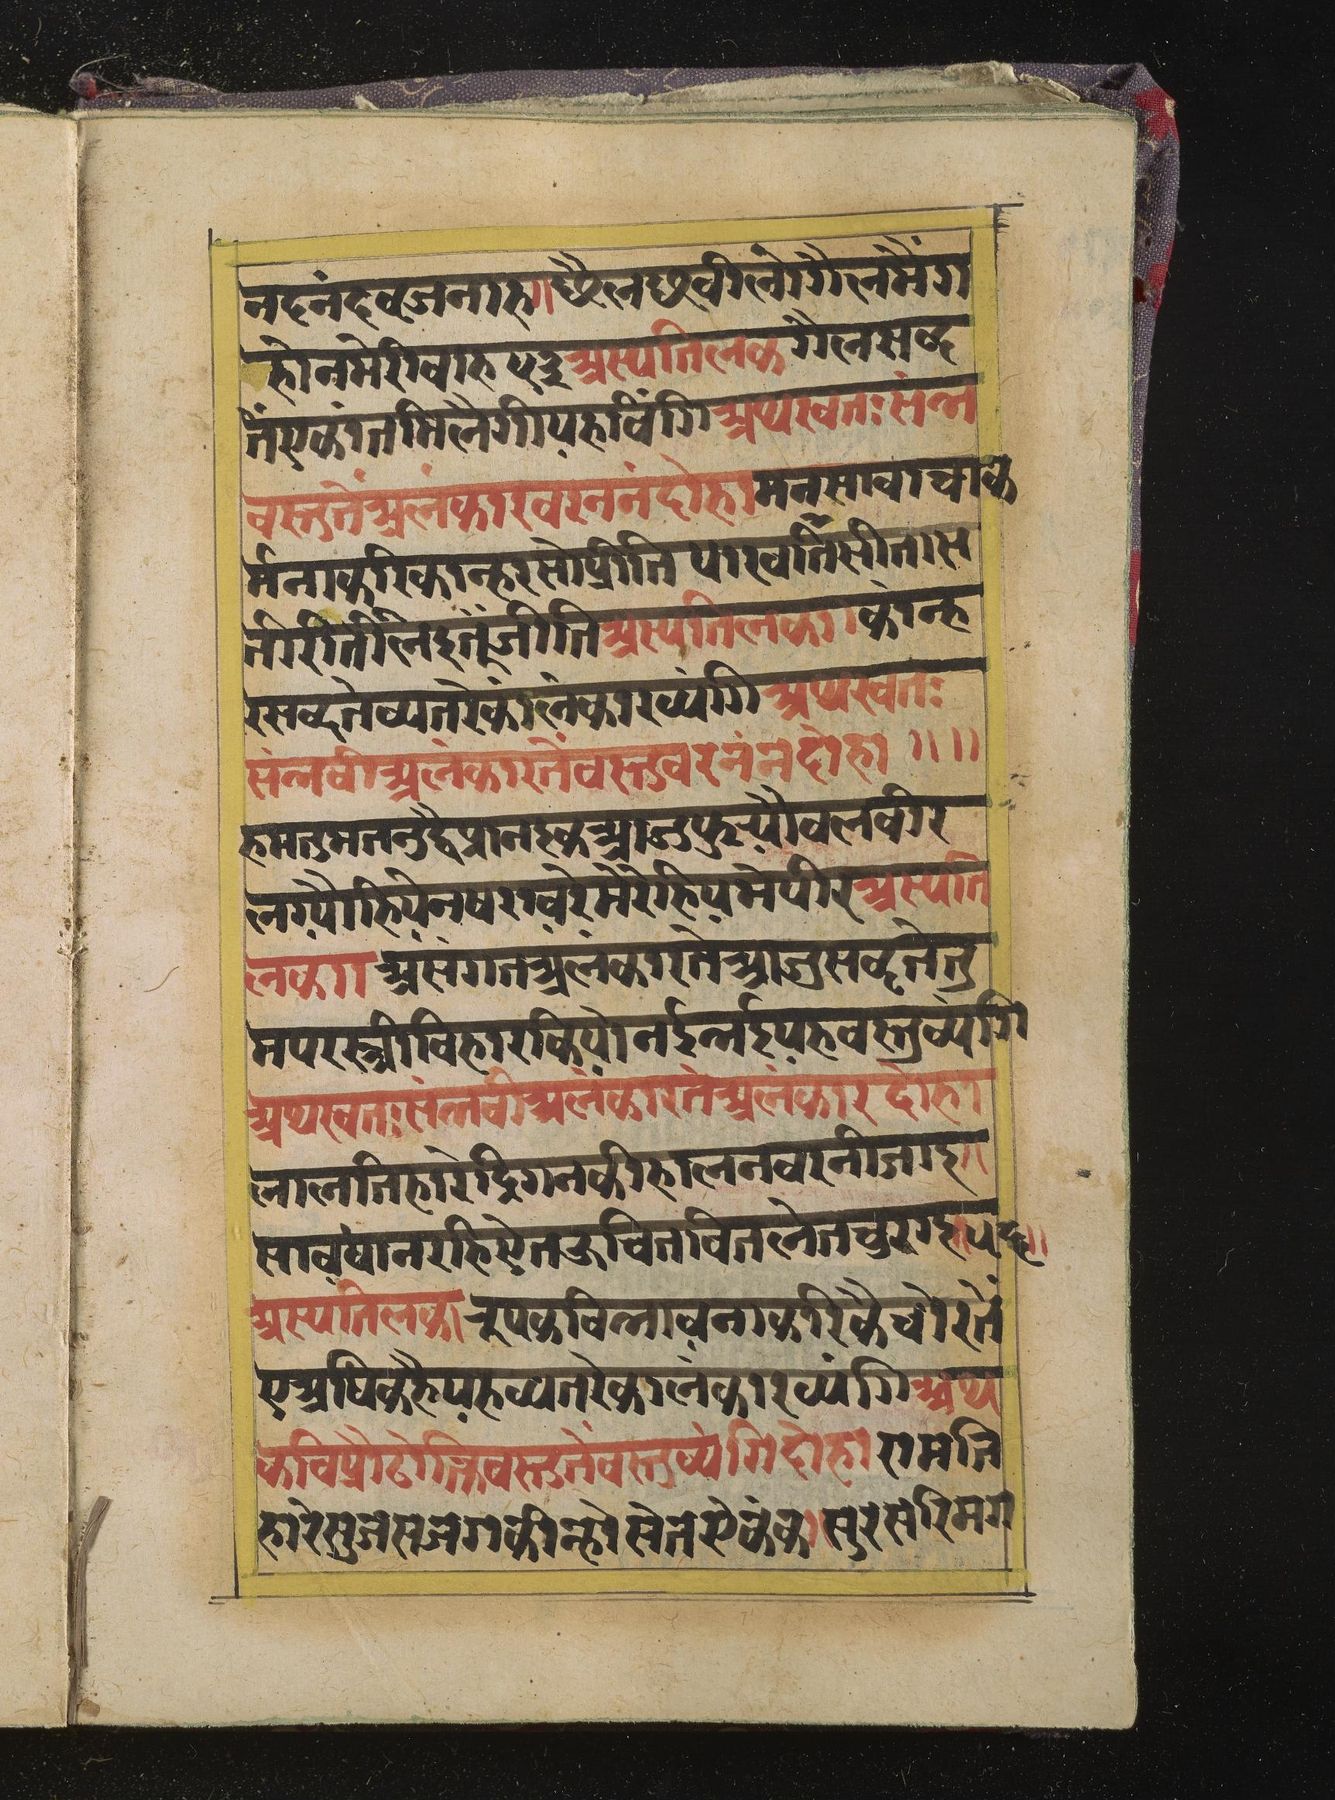 नदनंदव्रजनाह॥छैलछवीलोगैलमैंग
होनमेरीवाह ५३ अस्पतिलक गैलसब्द
तेंएकांतमिलैगीयहविंगि अथस्वतःसंभ
वस्तुतेंअलंकारवरननंदोहा मनसावाचाक
र्मनाकरिकान्हरसोप्रीति पारवतिसीतास
तीरीतिलिइतूंजीति अस्यतिलका।कान्ह
रसब्दतेव्यतरेकालंकारव्यंगि अथस्वतः
संभवीअलंकारतेंवस्तुवरनंनदोहा ॥॥
हमतुमतनुद्वैप्रानइकआजुफुर्यौवलवीर
लग्यौहियेनषरावरेमेरेहियमेपीर अस्यति
लका। असंगतअलंकारतेआजुसब्दतेतु
मपरस्त्रीविहारकियोनईभईयहवस्तुव्यंगि
अथस्वतःसंभवीअलंकारतेअलंकारदोहा
लालतिहारेद्रिगनकीहालनवरनीजाइ॥
सावधानरहिऐतऊचितवितलेतचुराइ॥५६॥
अस्यतिलक।रूपकविभावनाकरिकैचोरतें
एअधिकहैयहव्यतरेकालंकारव्यंगि अथ
कविप्रौढोक्तिवस्तुतेंवस्तुव्यंगिदोहा रामति
हारेसुजसजगकीन्होसेतऐकंक॥सुरसरिमग